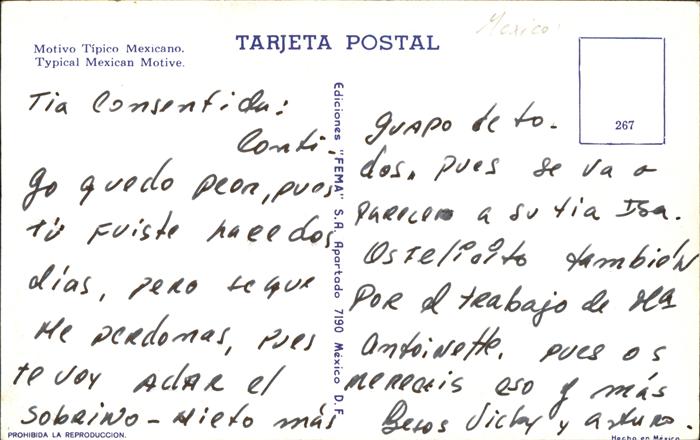 Mexico
TARJETA POSTAL
Motivo Típico Mexicano.
Typical Mexican Motive.
267
Tia Consentida:
Conti-
go quedo peor, pues
tú fuiste hace dos
días, pero se que
me perdonas, pues
te voy a dar el
sobrino-nieto más
Ediciones "FEMA" S.A. Apartado 7190 México D.F.
guapo de to-
dos, pues se va a
parecer a su tia Isa.
Ostelicito también
por el trabajo de Mª
Antoinette, pues os
mereceis eso y más
Besos Vicky y Arturo.
PROHIBIDA LA REPRODUCCION.
Hecho en México